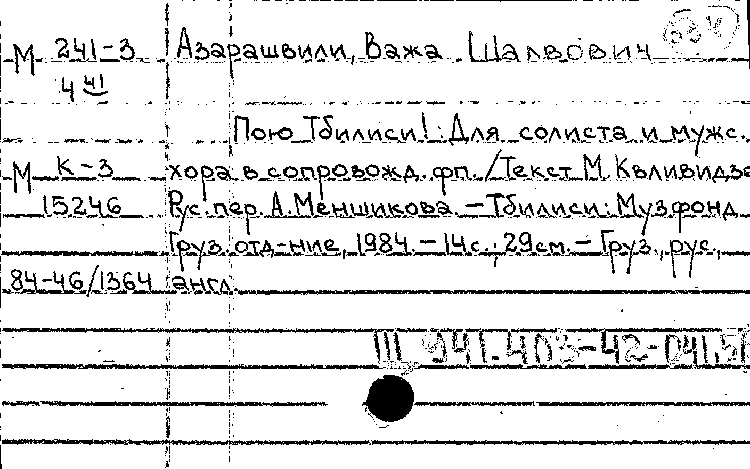 М 241-3 Азарашвили, Важа Шалвович
4 41
Пою Тбилиси!: Для солиста и мужс.
М К-3 хора в сопровожд. фп./Текст М. Квливидзе
15246 Рус. пер. А. Меншикова. – Тбилиси: Музфонд.
Груз. отд-ние, 1984. – 14с.; 29см. – Груз., рус.,
84-46/1364 англ.
Ш 941.403-42-041.51